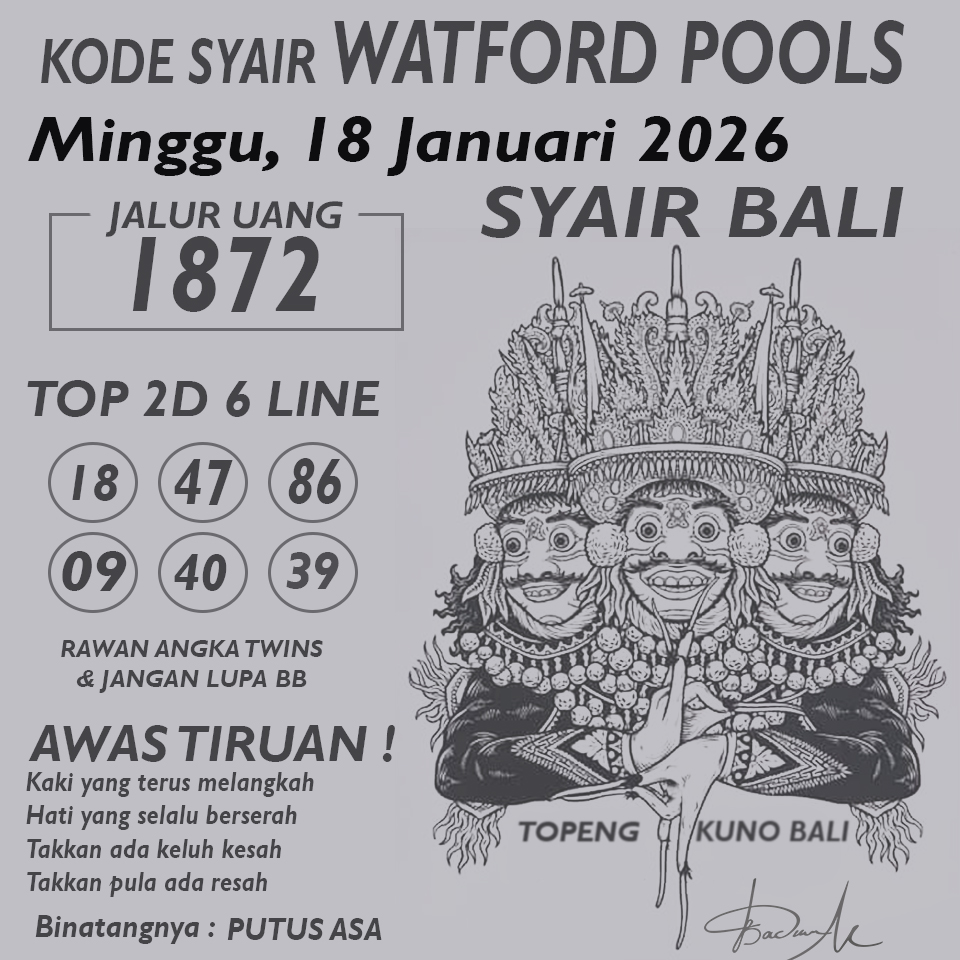 KODE SYAIR WATFORD POOLS
Minggu, 18 Januari 2026
SYAIR BALI
JALUR UANG
1872
TOP 2D 6 LINE
18 47 86
09 40 39
RAWAN ANGKA TWINS
& JANGAN LUPA BB
AWAS TIRUAN !
Kaki yang terus melangkah
Hati yang selalu berserah
Takkan ada keluh kesah
Takkan pula ada resah
Binatangnya : PUTUS ASA
TOPENG KUNO BALI